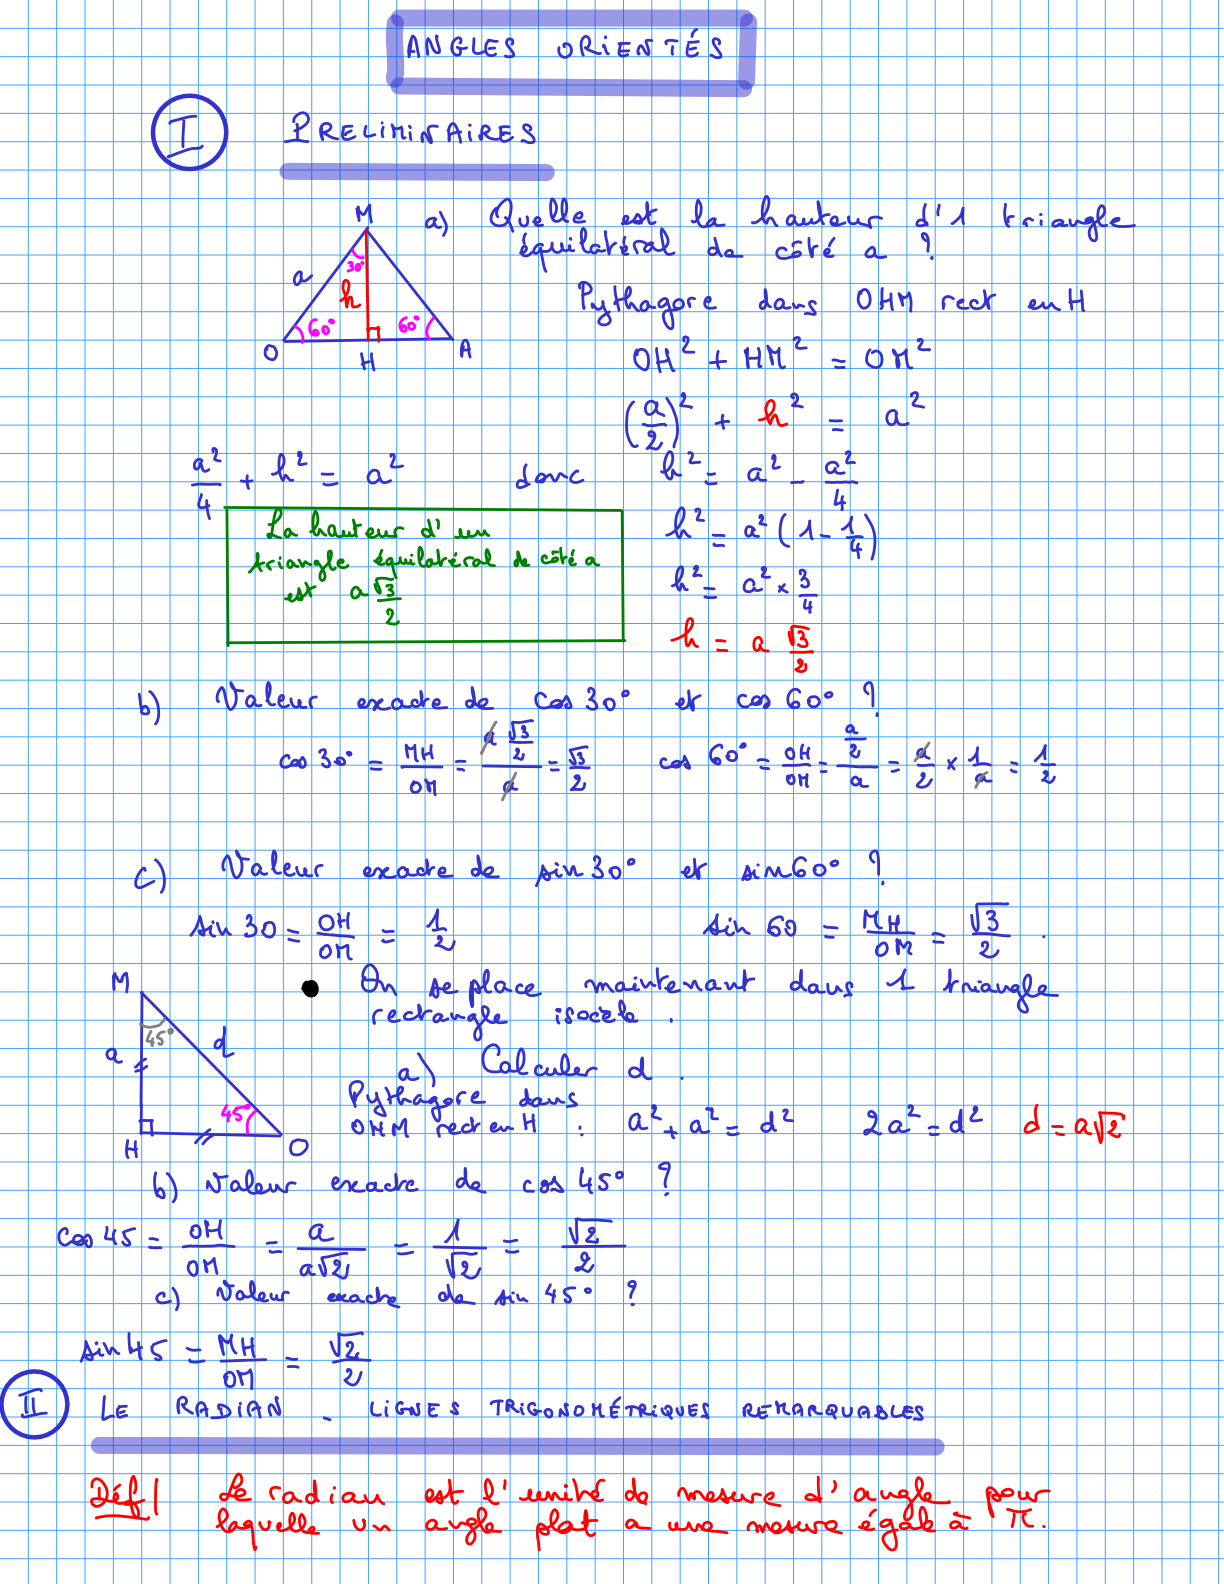 ANGLES ORIENTÉS
I PRELIMINAIRES
M
a) Quelle est la hauteur d'1 triangle
équilatéral de côté a ?
a 30° h
60° 60°
O H A
Pythagore dans OHM rect en H
OH² + HM² = OM²
(a/2)² + h² = a²
a²/4 + h² = a² donc h² = a² - a²/4
La hauteur d'un
triangle équilatéral de côté a
est a √3/2
h² = a² (1 - 1/4)
h² = a² × 3/4
h = a √3/2
b) Valeur exacte de cos 30° et cos 60° ?
cos 30° = MH/OM = (a √3/2)/a = √3/2 cos 60° = OH/OM = (a/2)/a = a/2 × 1/a = 1/2
c) Valeur exacte de sin 30° et sin 60° ?
sin 30 = OH/OM = 1/2 sin 60 = MH/OM = √3/2 .
M
45°
a d
45°
H O
• On se place maintenant dans 1 triangle
rectangle isocèle .
a) Calculer d .
Pythagore dans
OHM rect en H : a² + a² = d² 2a² = d² d = a√2
b) Valeur exacte de cos 45° ?
cos 45 = OH/OM = a/a√2 = 1/√2 = √2/2
c) Valeur exacte de sin 45° ?
sin 45 = MH/OM = √2/2
II LE RADIAN - LIGNES TRIGONOMÉTRIQUES REMARQUABLES
Déf| Le radian est l'unité de mesure d'angle pour
laquelle un angle plat a une mesure égale à π.